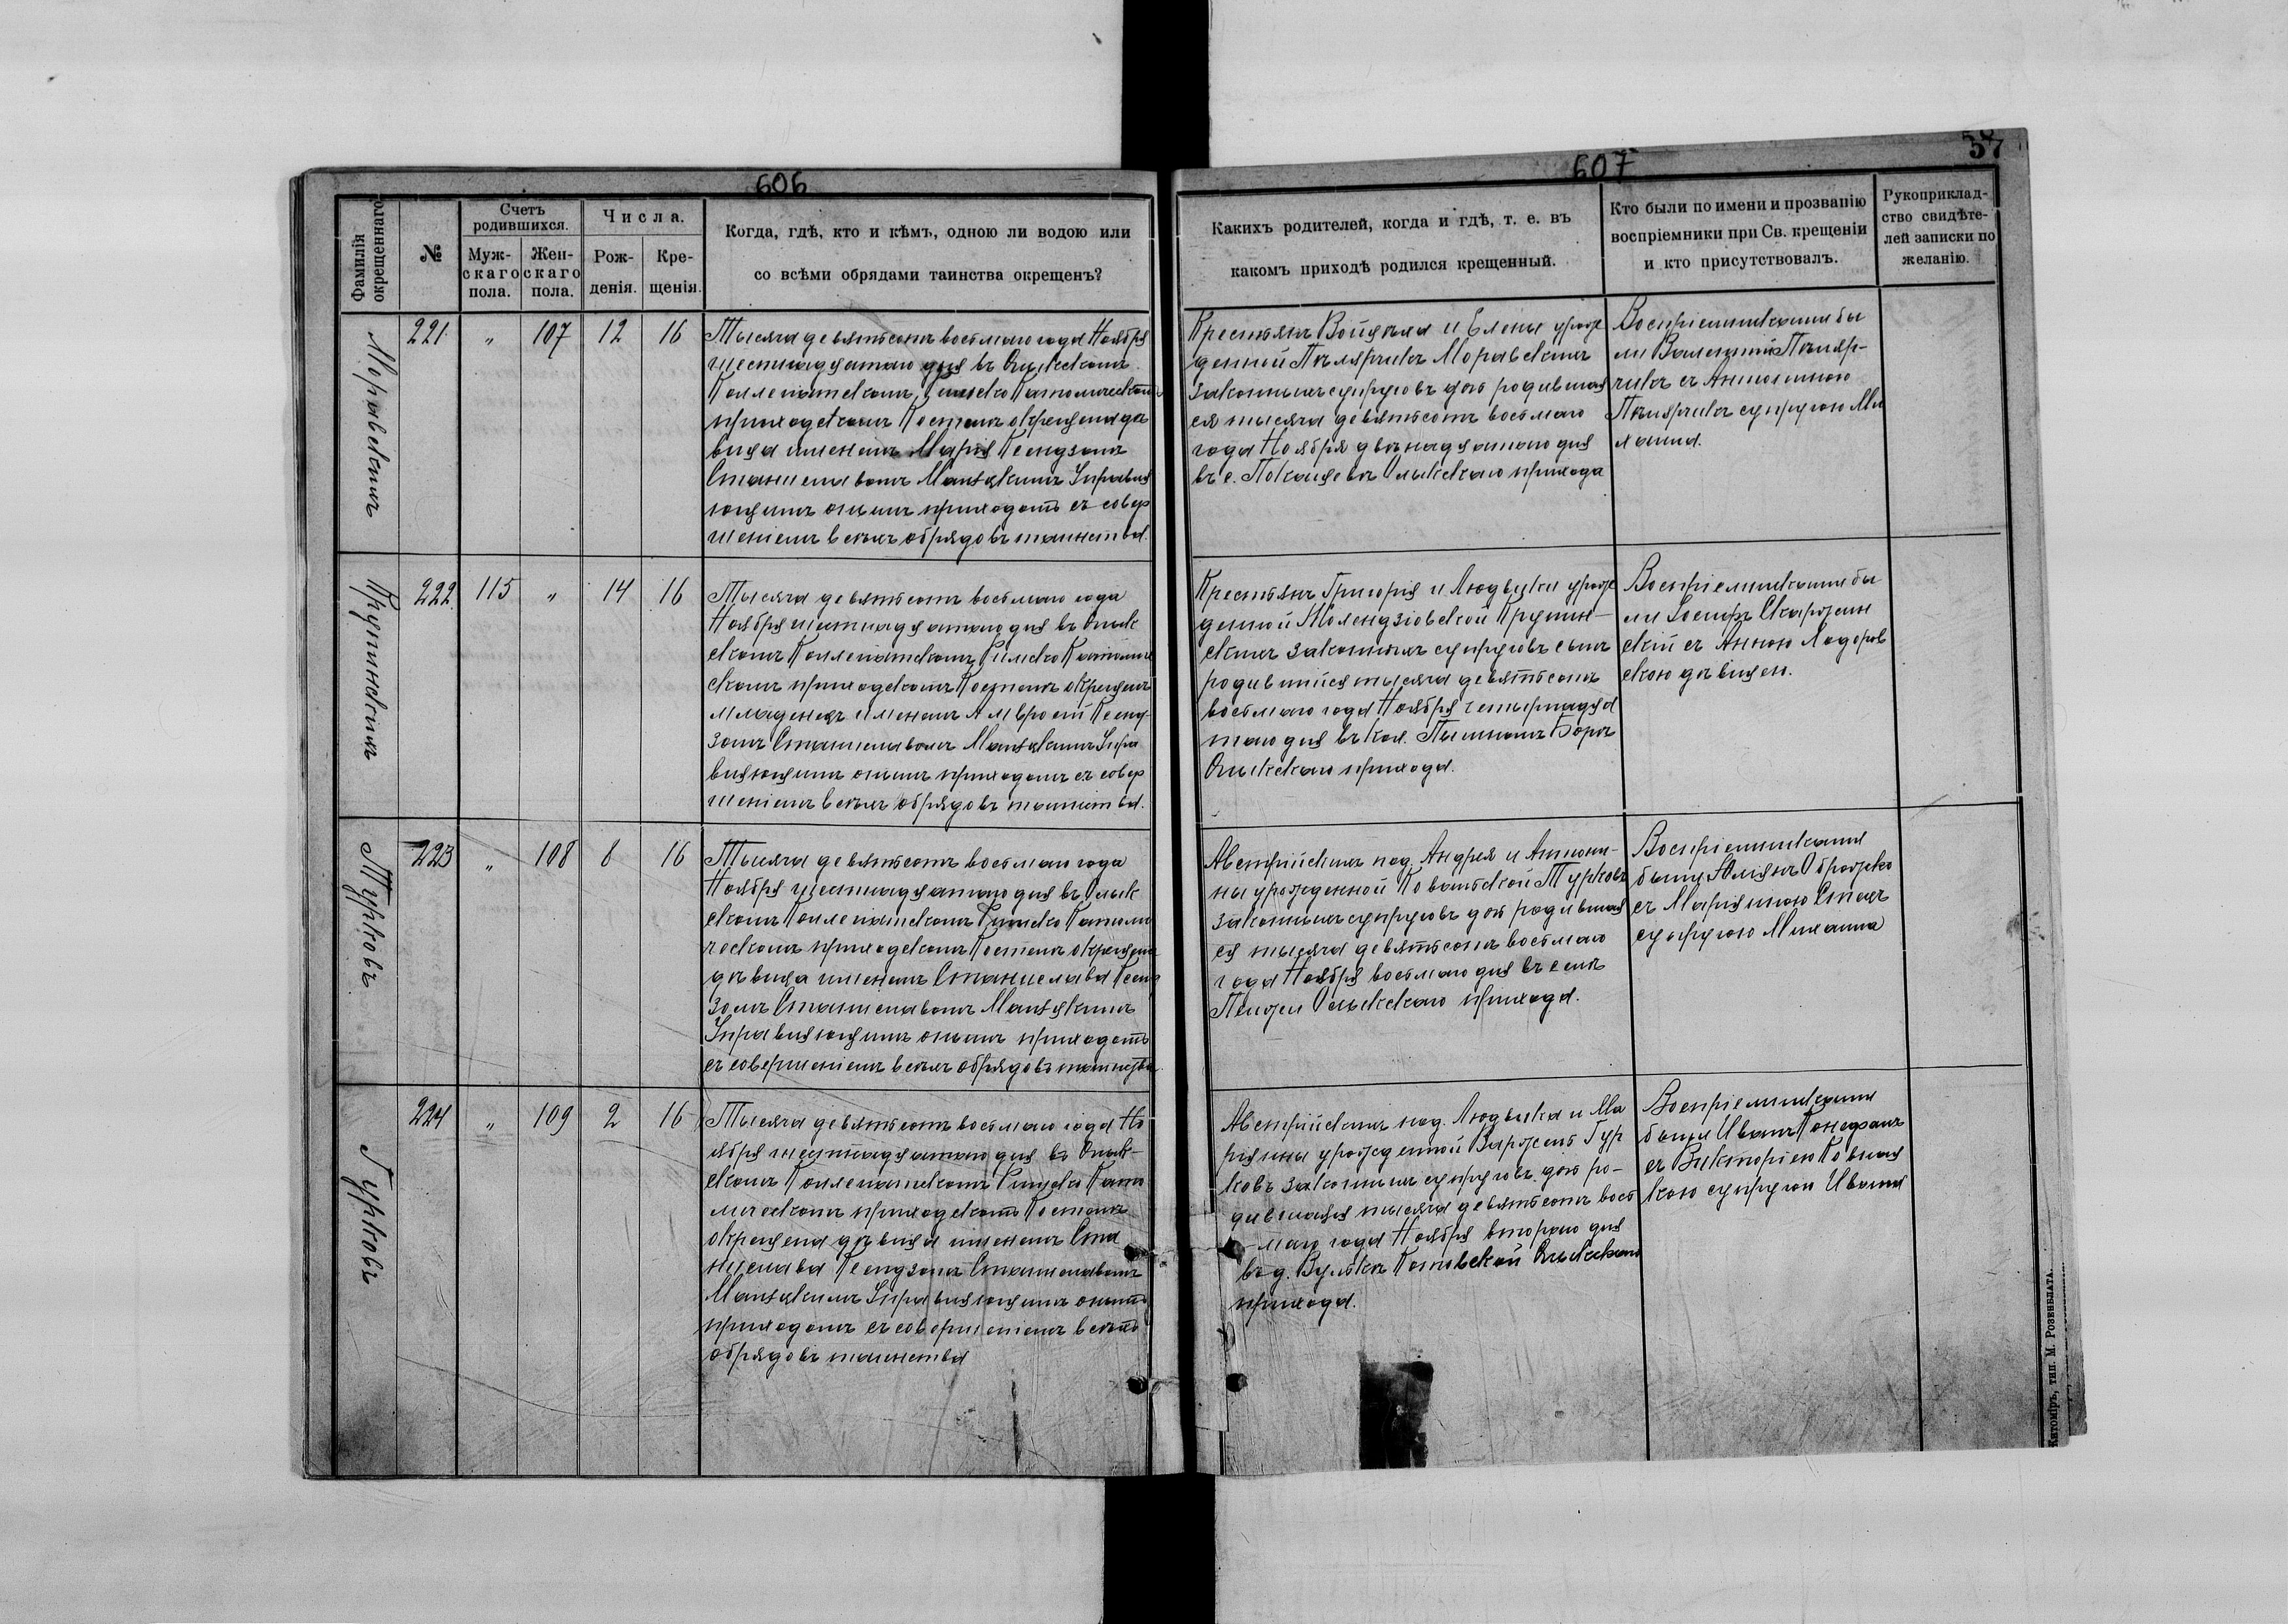 606
Фамилія окрещеннаго.
№
Счетъ родившихся.
Муж-
скаго
пола.
Жен-
скаго
пола.
Числа.
Рож-
денія.
Кре-
щенія.
Когда, гдѣ, кто и кѣмъ, одною ли водою или
со всѣми обрядами таинства окрещенъ?
Моравскихъ
221.
„
107
12
16
Тысяча девятьсотъ восьмаго года Ноября
шестнадцатаго дня въ Олыкскомъ
Коллегіатскомъ Римско Католическомъ
приходскомъ Костелѣ окрещена дѣ
вица именемъ Марія Ксендзомъ
Станиславомъ Мавъ Управля
ющимъ онымъ приходомъ съ совер
шеніемъ всѣхъ обрядовъ таинства.
Крупинскихъ
222.
115
„
14
16
Тысяча девятьсотъ восьмаго года
Ноября шестнадцатаго дня въ Олык
скомъ Коллегіатскомъ Римско Католиче
скомъ приходскомъ Костелѣ окрещенъ
младенецъ именемъ Амвросій Ксенд-
зомъ Станиславомъ Упра
вляющимъ онымъ приходомъ съ совер
шеніемъ всѣхъ обрядовъ таинства.
Турковъ
223
„
108
8
16
Тысяча девятьсотъ восьмаго года
Ноября шестнадцатаго дня въ Олык
скомъ Коллегіатскомъ Римско Католи
ческомъ приходскомъ Костелѣ окрещена
дѣвица именемъ Станислава Ксенд
зомъ Станиславомъ
Управляющимъ онымъ приходомъ
съ совершеніемъ всѣхъ обрядовъ таинства.
Гурковъ
224
„
109
2
16
Тысяча девятьсотъ восьмаго года Но
ября шестнадцатаго дня въ Олык-
скомъ Коллегіатскомъ Римско Като
лическомъ приходскомъ Костелѣ
окрещена дѣвица именемъ Ста
нислава Ксендзомъ Станиславомъ
Управляющимъ онымъ
приходомъ съ совершеніемъ всѣхъ
обрядовъ таинства
607
57
Какихъ родителей, когда и гдѣ, т. е. въ
какомъ приходѣ родился крещенный.
Кто были по имени и прозванію
воспріемники при Св. крещеніи
и кто присутствовалъ.
Рукоприклад-
ство свидѣте-
лей записки по
желанію.
Крестьянъ Войцѣха и Елены урож
денной Моравскихъ
законныхъ супруговъ дочь родившая
ся тысяча девятьсотъ восьмаго
года Ноября двѣнадцатаго дня
въ с. Покащевѣ Олыкскаго прихода
Воспріемниками бы
ли Валентій
съ Антониною
супругою Ми
хаила.
Крестьянъ Григорія и Людвики урож
денной Крупин-
скихъ законныхъ супруговъ сынъ
родившійся тысяча девятьсотъ
восьмаго года Ноября четырнадца
таго дня въ кол. Пьяномъ Борѣ
Олыкскаго прихода.
Воспріемниками бы
ли Іосифъ Скаржин
скій съ Анною Ходоров
скою дѣвицею.
Австрійскихъ под. Андрея и Антони-
ны урожденной Ковальской Турковъ
законныхъ супруговъ дочь родившая
ся тысяча девятьсотъ восьмаго
года Ноября восьмаго дня въ селѣ
Олыкскаго прихода.
Воспріемниками
были
съ Маріанною
супругою Михаила
Австрійскихъ под. Людвика и Ма
ріанны урожденной Гур
ковъ законныхъ супруговъ дочь ро-
дившаяся тысяча девятьсотъ вось
маго года Ноября втораго дня
въ д. Вулькѣ Котовской Олыкскаго
прихода.
Воспріемниками
были Иванъ
съ Викторіею
супругою Ивана
Житоміръ, тип. М. Розенблата.